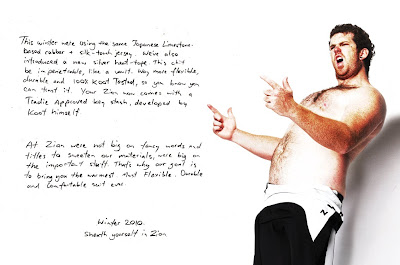 This winter were using the same Japanese Limestone-
based rubber + silk-touch jersey. We've also
introduced a new silver heat-tape. This shit
be in penetrable, like a vault. Way more flexible,
durable and 100% Koot Tested, so you know you
can trust it. Your Zion now comes with a
Tradie Approved key stash, developed by
Koot himself
At Zion were not big on fancy words and
titles to sweeten our materials, were big on
the important stuff. That's why our goal is
to bring you the warmest Most Flexible. Durable
and Comfortable suit ever.
Winter 2010.
Sheath yourself in Zion